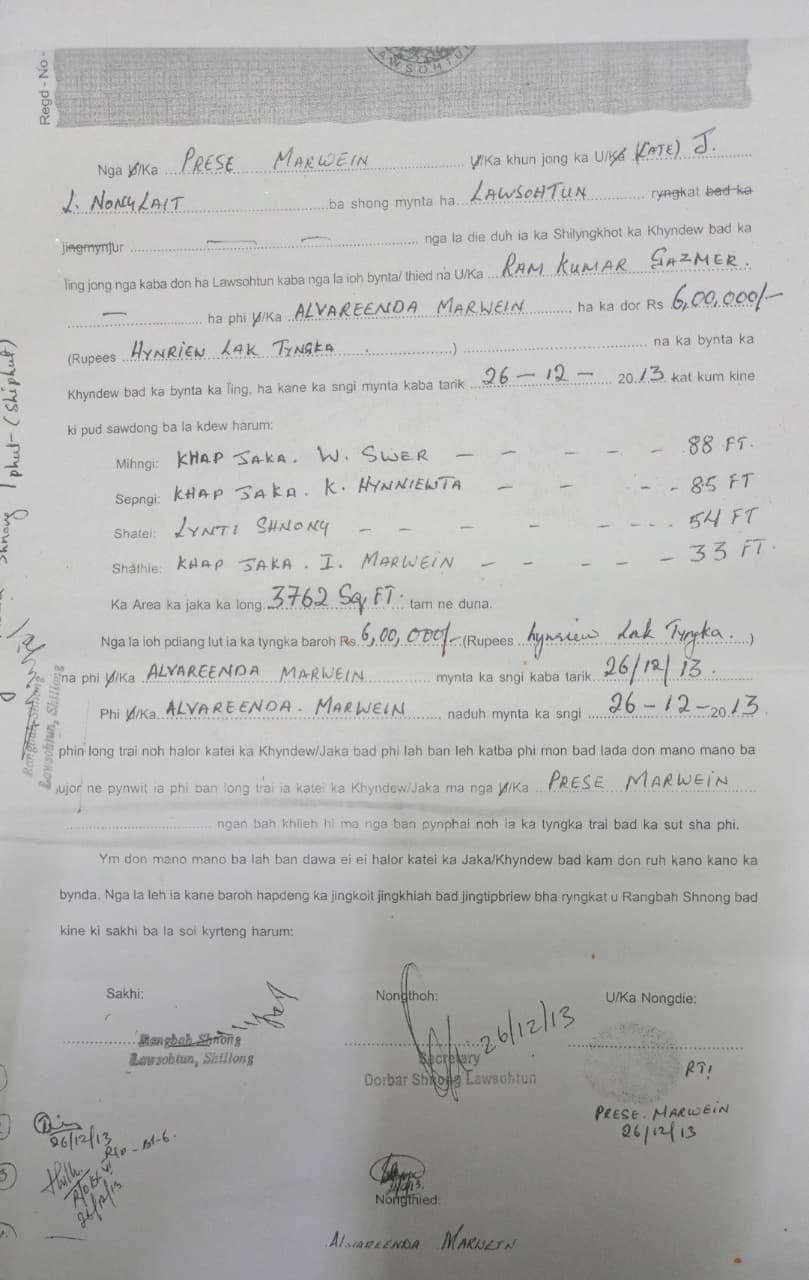 Regd - No -
AWSOHTU
Nga U/Ka PRESE MARWEIN U/Ka khun jong ka U/Ka (LATE) J.
L. NONGLAIT ba shong mynta ha LAWSOHTUN ryngkat bad ka
jingmynjur nga la die duh ia ka Shilyngkhot ka Khyndew bad ka
Iing jong nga kaba don ha Lawsohtun kaba nga la ioh bynta/ thied na U/Ka RAM KUMAR GAZMER.
ha phi U/Ka ALVAREENDA MARWEIN ha ka dor Rs 6,00,000/-
(Rupees HYNRIEW LAK TYNGKA ) na ka bynta ka
Khyndew bad ka bynta ka Iing, ha kane ka sngi mynta kaba tarik 26-12- 2013 kat kum kine
ki pud sawdong ba la kdew harum:
Mihngi: KHAP JAKA. W. SWER - - - - - 88 FT.
Sepngi: KHAP JAKA. K. HYNNIEWTA - - - - 85 FT
Shatei: LYNTI SHNONG - - - - - - - 54 FT
Shathie: KHAP JAKA. I. MARWEIN - - - - - 33 FT.
Ka Area ka jaka ka long 3762 Sq FT. tam ne duna.
Nga la ioh pdiang lut ia ka tyngka baroh Rs. 6,00,000/- (Rupees hynriew Lak Tyngka.)
na phi U/Ka ALVAREENDA MARWEIN mynta ka sngi kaba tarik 26/12/13.
Phi U/Ka ALVAREENDA. MARWEIN naduh mynta ka sngi 26-12-2013.
phin long trai noh halor katei ka Khyndew/Jaka bad phi lah ban leh katba phi mon bad lada don mano mano ba
ujor ne pynwit ia phi ban long trai ia katei ka Khyndew/Jaka ma nga U/Ka PRESE MARWEIN
ngan bah khlieh hi ma nga ban pynphai noh ia ka tyngka trai bad ka sut sha phi.
Ym don mano mano ba lah ban dawa ei ei halor katei ka Jaka/Khyndew bad kam don ruh kano kano ka
bynda. Nga la leh ia kane baroh hapdeng ka jingkoit jingkhiah bad jingtipbriew bha ryngkat u Rangbah Shnong bad
kine ki sakhi ba la soi kyrteng harum:
Shnong 1 phut-(shiphut)
Lawsohtun, Shillong
Sakhi:
Rangbah Shnong
Lawsohtun, Shillong
26/12/13
26/12/13
Nongthoh:
26/12/13
Secretary
Dorbar Shnong Lawsohtun
U/Ka Nongdie:
RT!
PRESE. MARWEIN
26/12/13
Nongthied:
ALVAREENDA MARWEIN